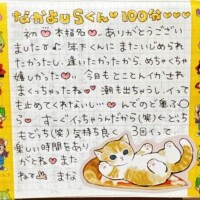 なかよしSくん 100分♥♥♥
初♥本指名♥、ありがとうござい
ました♡♡ 年下くんに またいじめられ
たかったし、逢いたかったから、めちゃくちゃ
嬉しかった♡♡ 今日もとことんイカせれ
まくっちゃったね♥ 潮も出ちゃうし、イって
も止めてくれないし
すーぐイッちゃうんだから(笑)←どち
もどちも(笑)気持ち良く 3回イって
楽しい時間をあり
がとね♥ また
ねてね まな